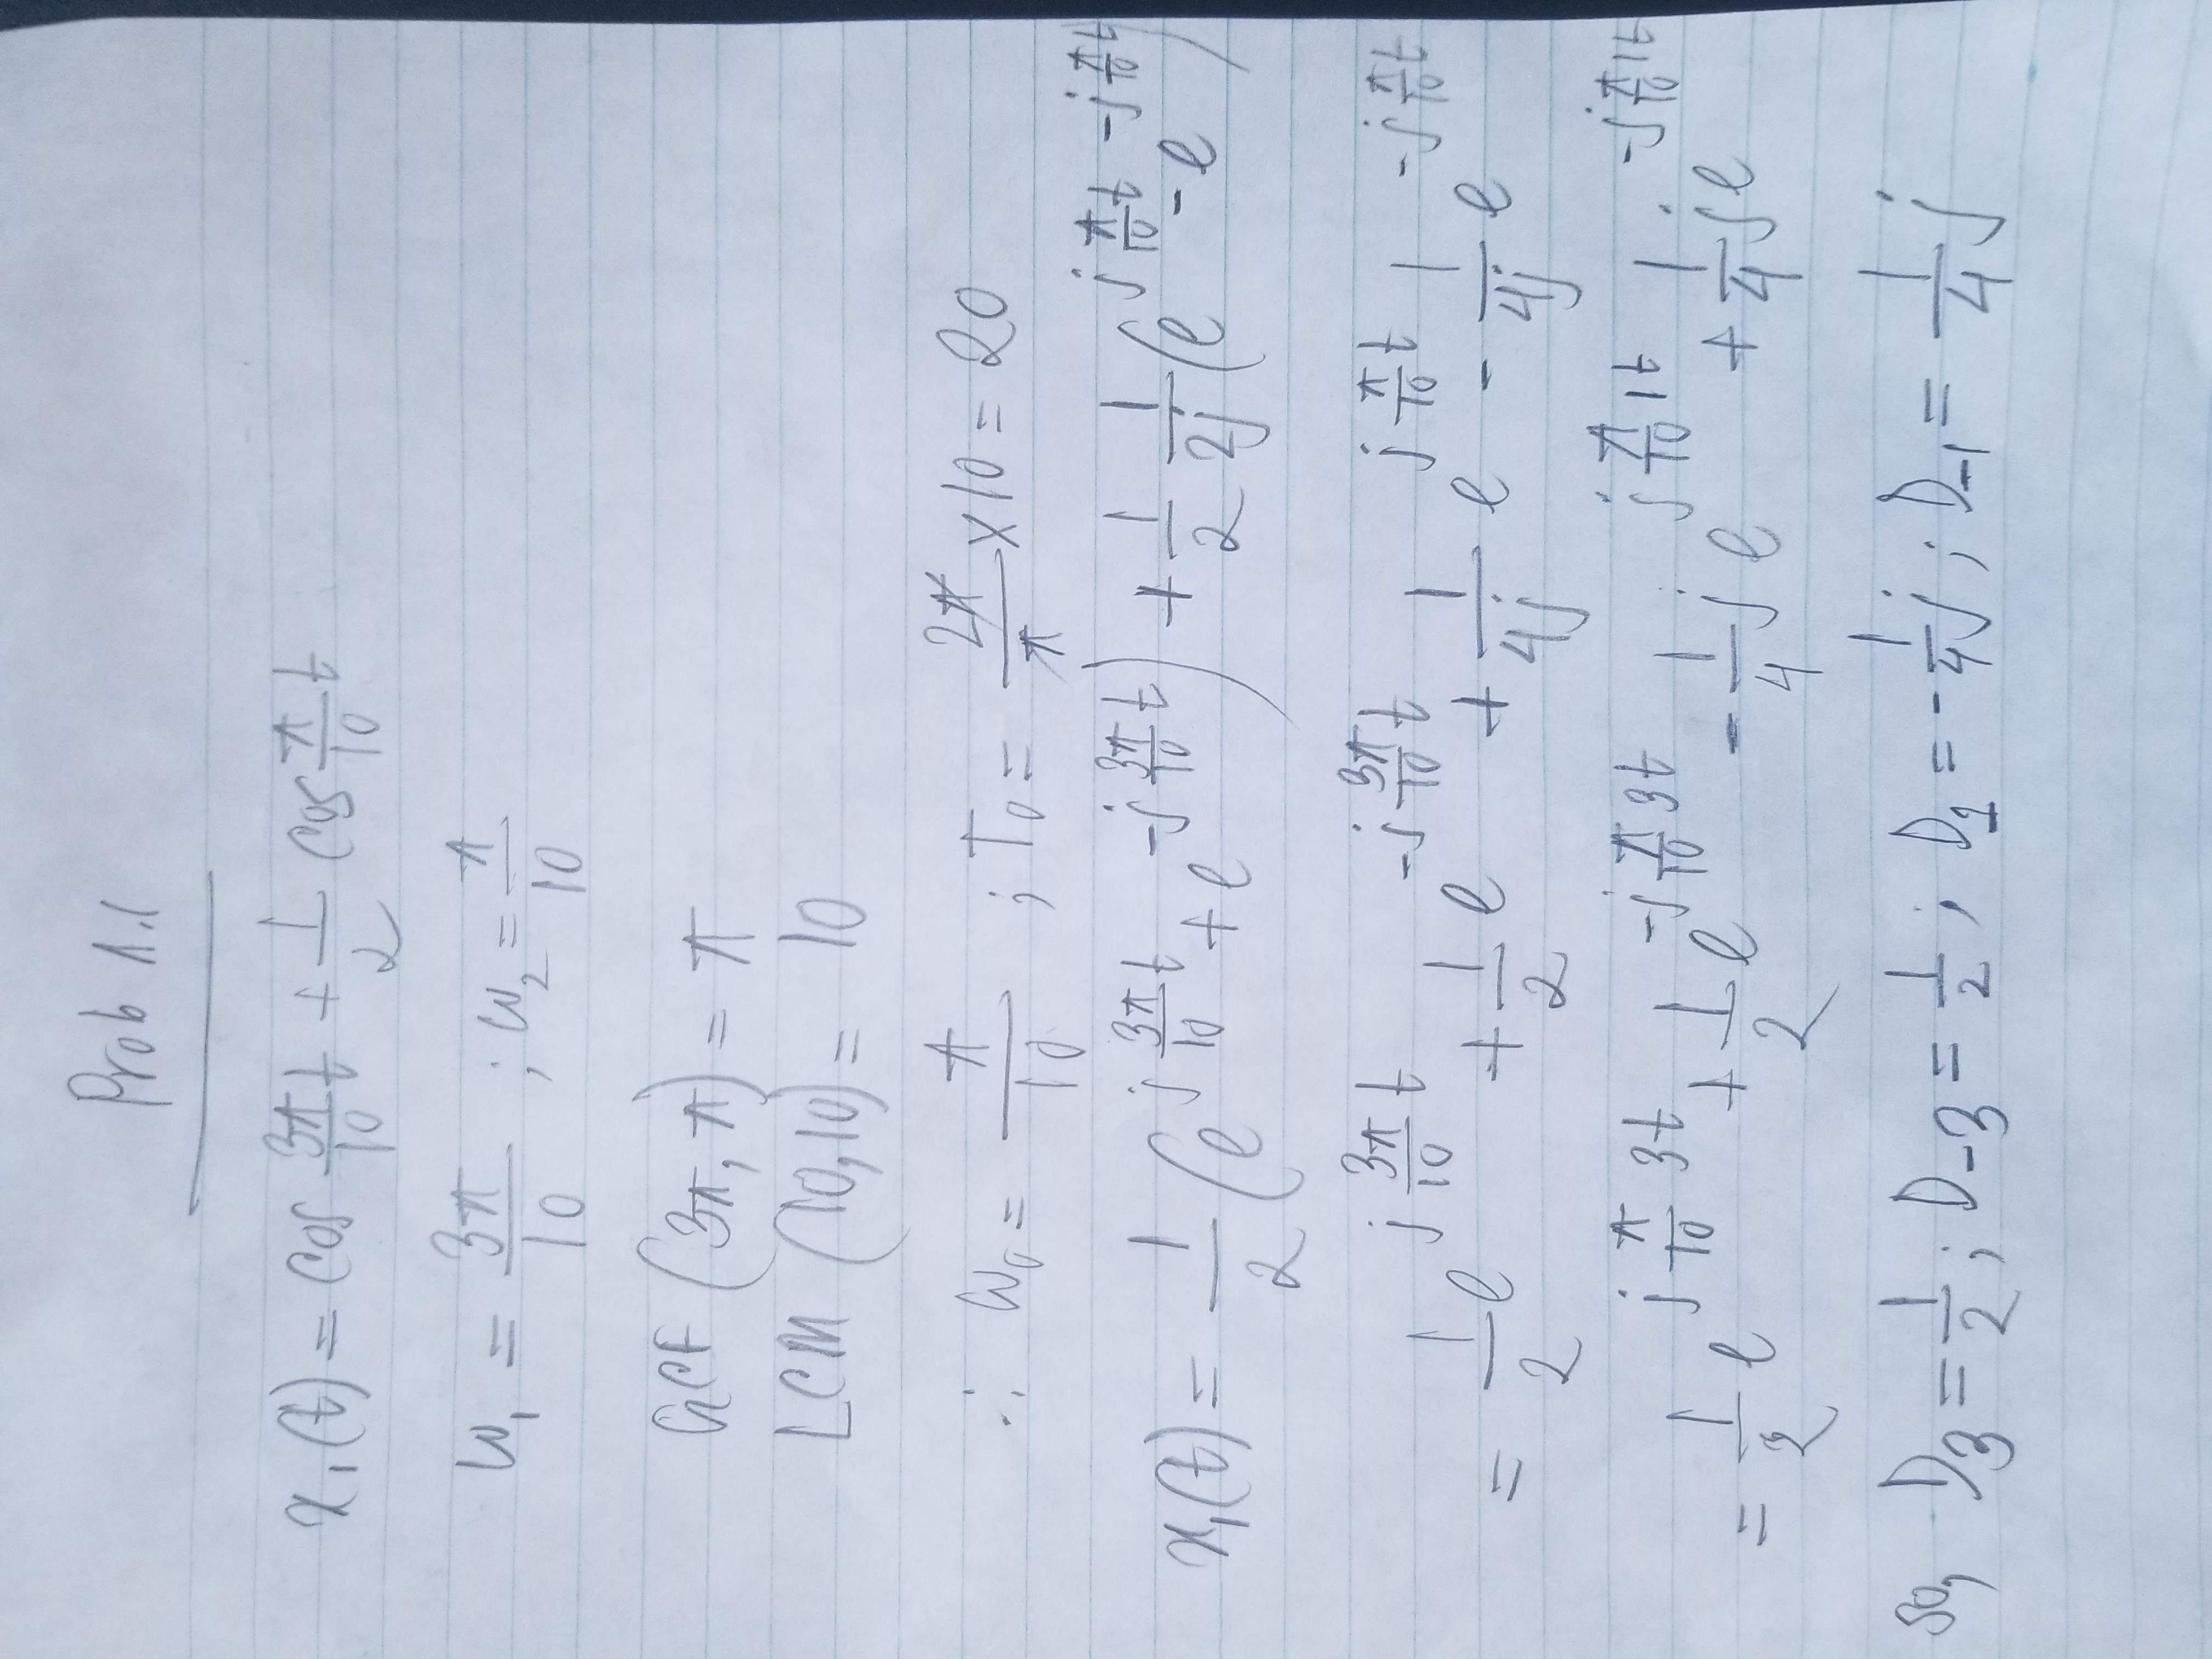 Prob 1.1
x₁(t) = cos 3π/10 t + 1/2 cos π/10 t
ω₁ = 3π/10 ; ω₂ = π/10
GCF (3π, π) = π
LCM (10,10) = 10
∴ ω₀ = π/10 ; T₀ = 2π/π × 10 = 20
x₁(t) = 1/2 (e^{j 3π/10 t} + e^{-j 3π/10 t}) + 1/2 1/2j (e^{j π/10 t} - e^{-j π/10 t})
= 1/2 e^{j 3π/10 t} + 1/2 e^{-j 3π/10 t} + 1/4j e^{j π/10 t} - 1/4j e^{-j π/10 t}
= 1/2 e^{j π/10 3t} + 1/2 e^{-j π/10 3t} - 1/4 j e^{j π/10 1t} + 1/4 j e^{-j π/10 1t}
so, D₃ = 1/2 ; D₋₃ = 1/2 ; D₁ = -1/4 j ; D₋₁ = 1/4 j